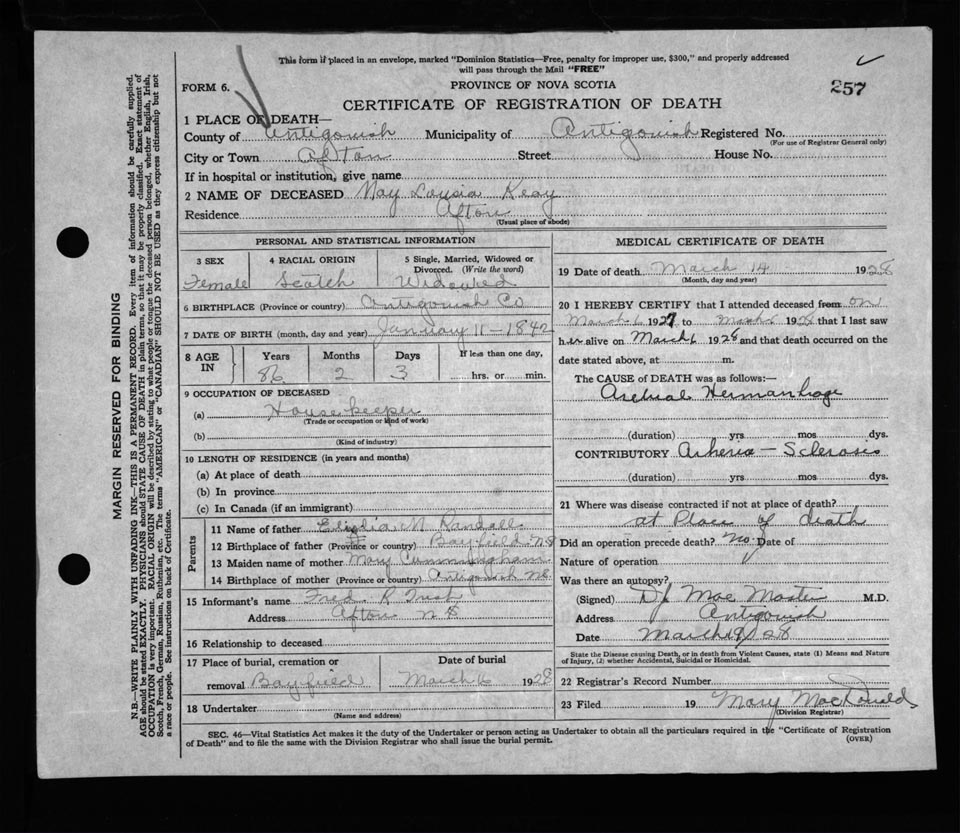 This form if placed in an envelope, marked "Dominion Statistics—Free, penalty for improper use, $300," and properly addressed
will pass through the Mail "FREE"
FORM 6.
PROVINCE OF NOVA SCOTIA
257
CERTIFICATE OF REGISTRATION OF DEATH
1 PLACE OF DEATH—
County of Antigonish Municipality of Antigonish Registered No.
(For use of Registrar General only)
City or Town Afton Street House No.
If in hospital or institution, give name
2 NAME OF DECEASED May Lousia Keay
Residence Afton
(Usual place of abode)
PERSONAL AND STATISTICAL INFORMATION
3 SEX 4 RACIAL ORIGIN 5 Single, Married, Widowed or
Divorced. (Write the word)
Female Scotch Widowed
6 BIRTHPLACE (Province or country) Antigonish Co
7 DATE OF BIRTH (month, day and year) January 11 - 1842
8 AGE IN Years Months Days If less than one day,
86 2 3 hrs. or min.
9 OCCUPATION OF DECEASED
(a) House keeper
(Trade or occupation or kind of work)
(b)
(Kind of industry)
10 LENGTH OF RESIDENCE (in years and months)
(a) At place of death
(b) In province
(c) In Canada (if an immigrant)
Parents
11 Name of father M Randall
12 Birthplace of father (Province or country) Bayfield N.S
13 Maiden name of mother Mary Cunningham
14 Birthplace of mother (Province or country) Antigonish N.S.
15 Informant's name Fred R
Address Afton N S
16 Relationship to deceased
17 Place of burial, cremation or Date of burial
removal Bayfield March 1928
18 Undertaker
(Name and address)
MEDICAL CERTIFICATE OF DEATH
19 Date of death March 14 1928
(Month, day and year)
20 I HEREBY CERTIFY that I attended deceased from on
March 6 1927 to March 6 1928 that I last saw
her alive on March 6 1928 and that death occurred on the
date stated above, at m.
The CAUSE of DEATH was as follows:—
Hermanhage
(duration) yrs mos dys.
CONTRIBUTORY - Sclerosis
(duration) yrs mos dys.
21 Where was disease contracted if not at place of death?
at Place of death
Did an operation precede death? No. Date of
Nature of operation
Was there an autopsy?
(Signed) D J Mac Master M.D.
Address Antigonish
Date March 28
State the Disease causing Death, or in death from Violent Causes, state (1) Means and Nature
of Injury, (2) whether Accidental, Suicidal or Homicidal.
22 Registrar's Record Number
23 Filed 19 Mary MacDonald
(Division Registrar)
SEC. 46—Vital Statistics Act makes it the duty of the Undertaker or person acting as Undertaker to obtain all the particulars required in the "Certificate of Registration
of Death" and to file the same with the Division Registrar who shall issue the burial permit.
(OVER)
MARGIN RESERVED FOR BINDING
N.B.—WRITE PLAINLY WITH UNFADING INK—THIS IS A PERMANENT RECORD. Every item of information should be carefully supplied.
AGE should be stated EXACTLY. PHYSICIANS should STATE CAUSE OF DEATH in plain terms, so that it may be properly classified. Exact statement of
OCCUPATION is very important. RACIAL ORIGIN will be described by stating to what people or tongue the deceased person belonged, whether English, Irish,
Scotch, French, German, Russian, Ruthenian, etc. The terms "AMERICAN" or "CANADIAN" SHOULD NOT BE USED as they express citizenship but not
a race or people. See instructions on back of Certificate.